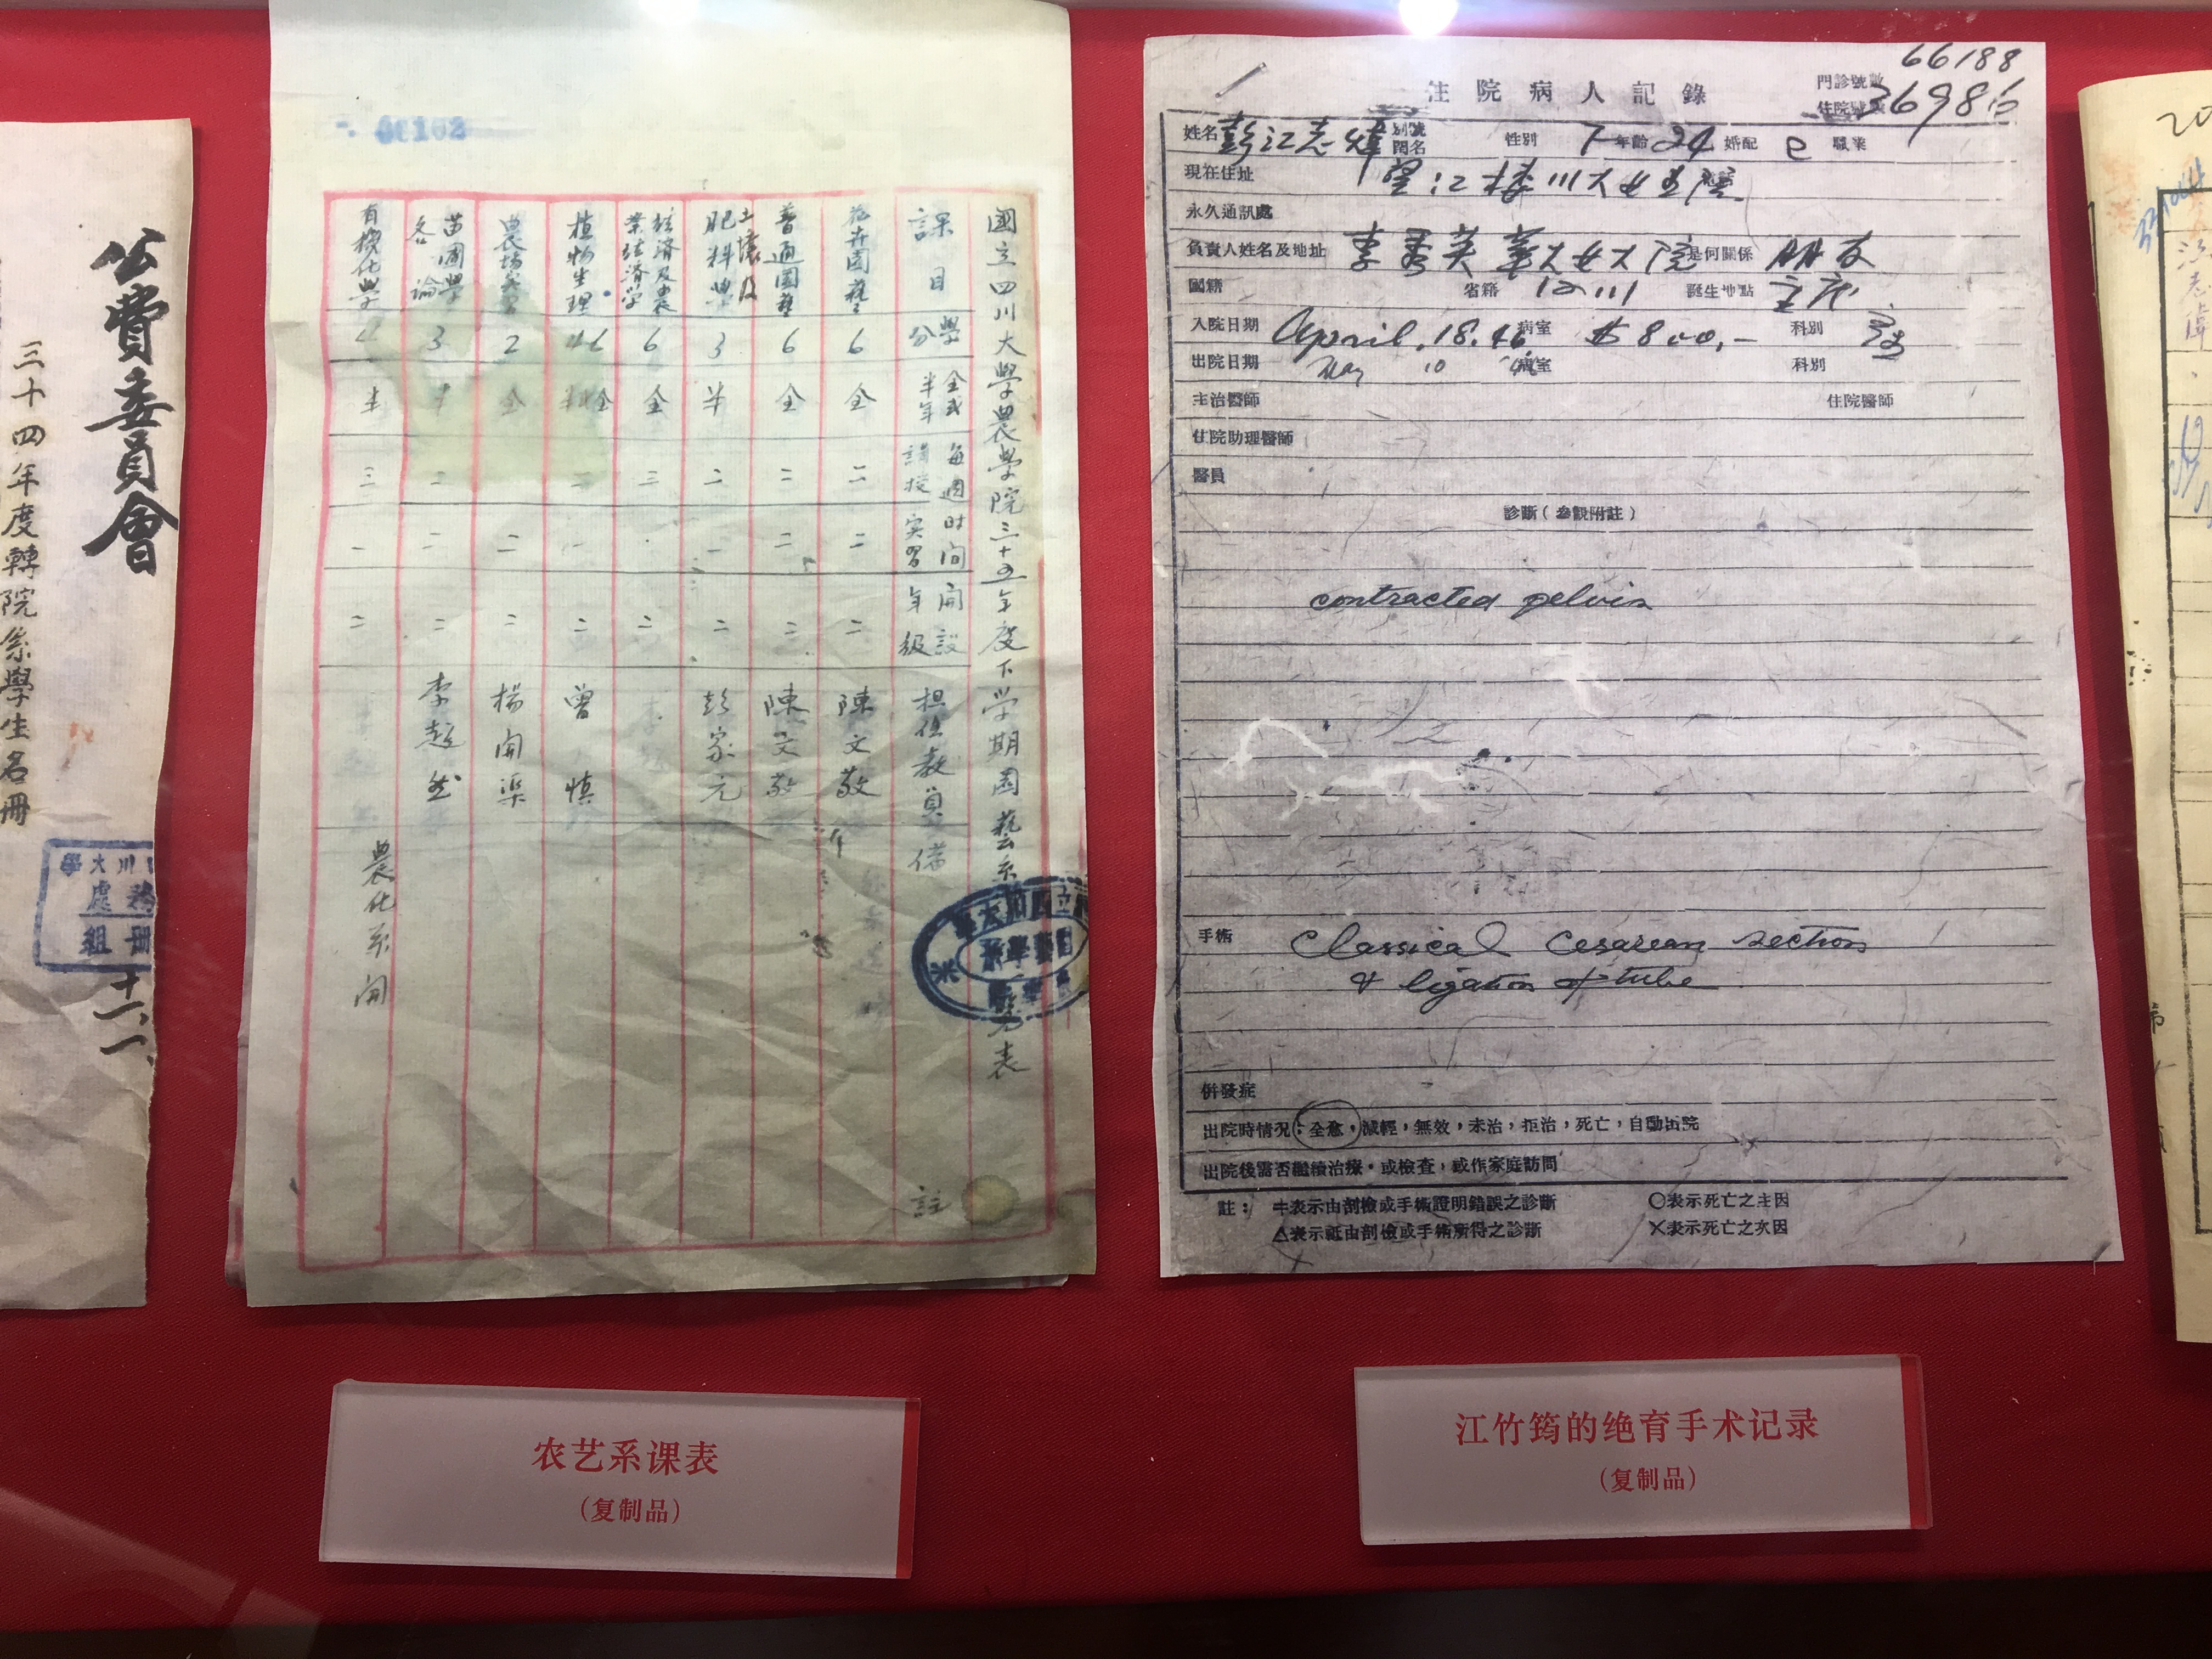 公費委員會
三十四年度轉院系學生名冊
十二、一、
00102
國立四川大學農學院三十五年度下学期園藝系
表
課目
學分
全或半年
每週时间
講授
实習
開設年級
担任教員
備
註
花卉園藝
6
全
二
二
二
陳文敬
普通園藝
6
全
二
二
二
陳文敬
土壤及肥料學
3
半
二
一
二
彭家元
經濟及農業経済学
6
全
三
二
植物生理
6
全
二
二
曾慎
農場实習
2
全
二
二
楊開渠
苗圃學各論
3
半
二
二
二
李超然
有機化學
4
半
三
一
二
農化系開
农艺系课表
(复制品)
66188
門診號數
住院病人記錄
住院號數 36986
姓名 彭江志煒 別號 閨名 性別 年齡 24 婚配 已 職業
現在住址 望江樓川大女生院
永久通訊處
負責人姓名及地址 李秀英 華大女大院 是何關係 朋友
國籍 省籍 四川 誕生地點
入院日期 April, 18. 46 病室 $800,- 科別
出院日期 May 10 病室 科別
主治醫師 住院醫師
住院助理醫師
醫員
診斷(參觀附註)
contracted pelvis
手術 Classical Cesarean section
& ligation of tube
併發症
出院時情況:全愈,減輕,無效,未治,拒治,死亡,自動出院
出院後需否繼續治療,或檢查,或作家庭訪問
註: 表示由剖檢或手術證明錯誤之診斷 ○表示死亡之主因
△表示祗由剖檢或手術所得之診斷 ×表示死亡之次因
江竹筠的绝育手术记录
(复制品)